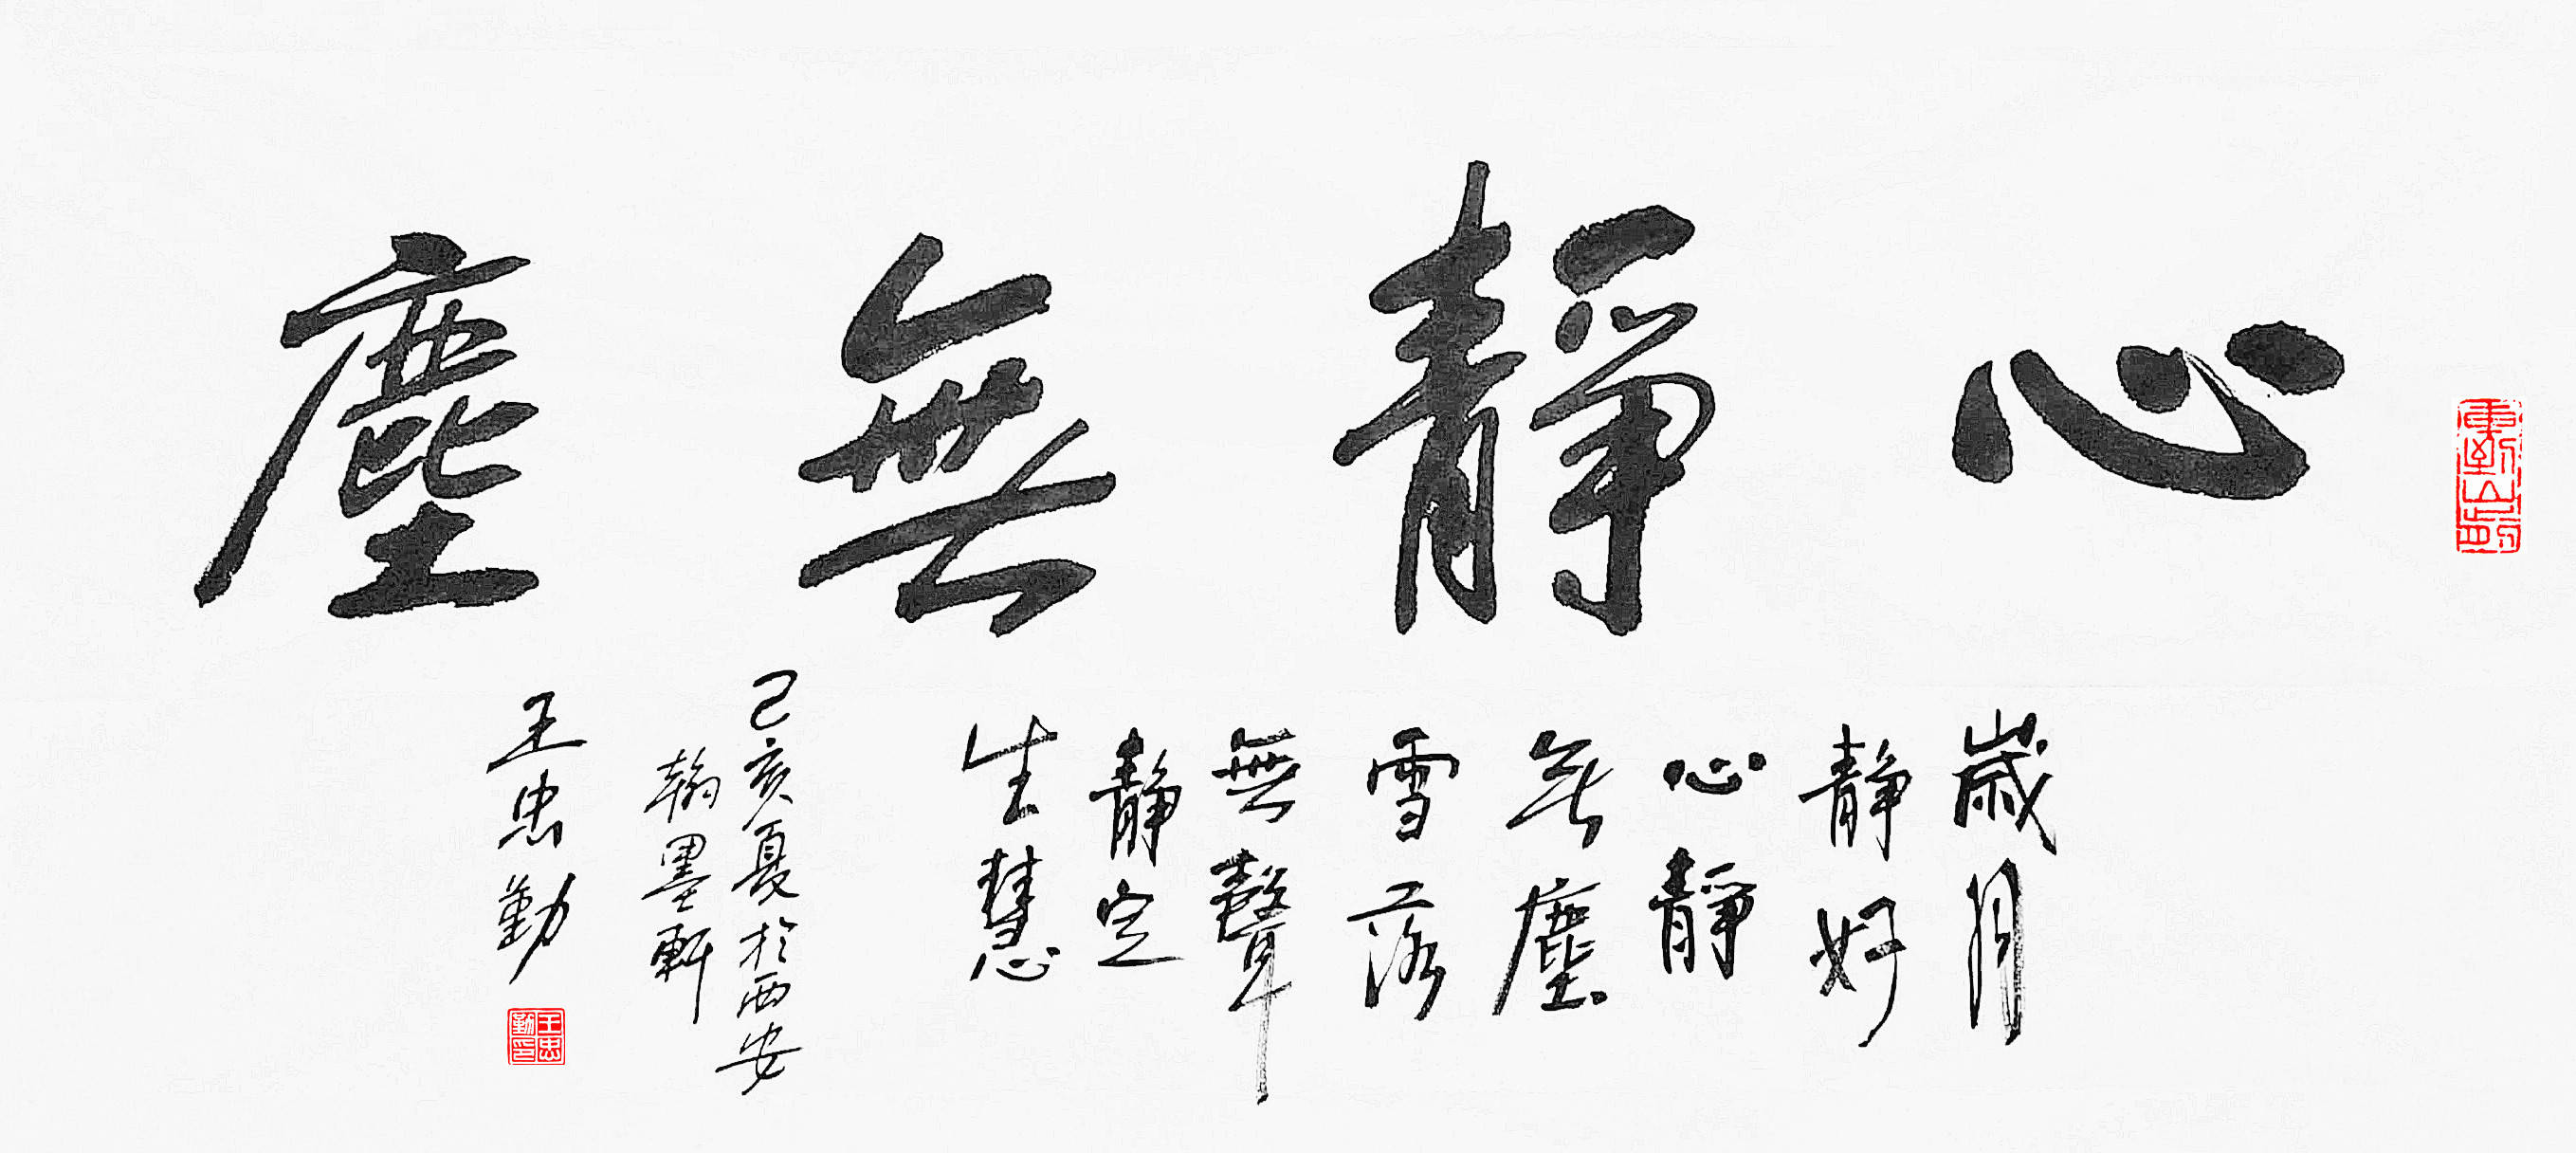 心靜無塵
歲月
靜好
心靜
無塵
雪落
無聲
靜定
生慧
己亥夏於西安
翰墨軒
王忠勤
王忠勤印